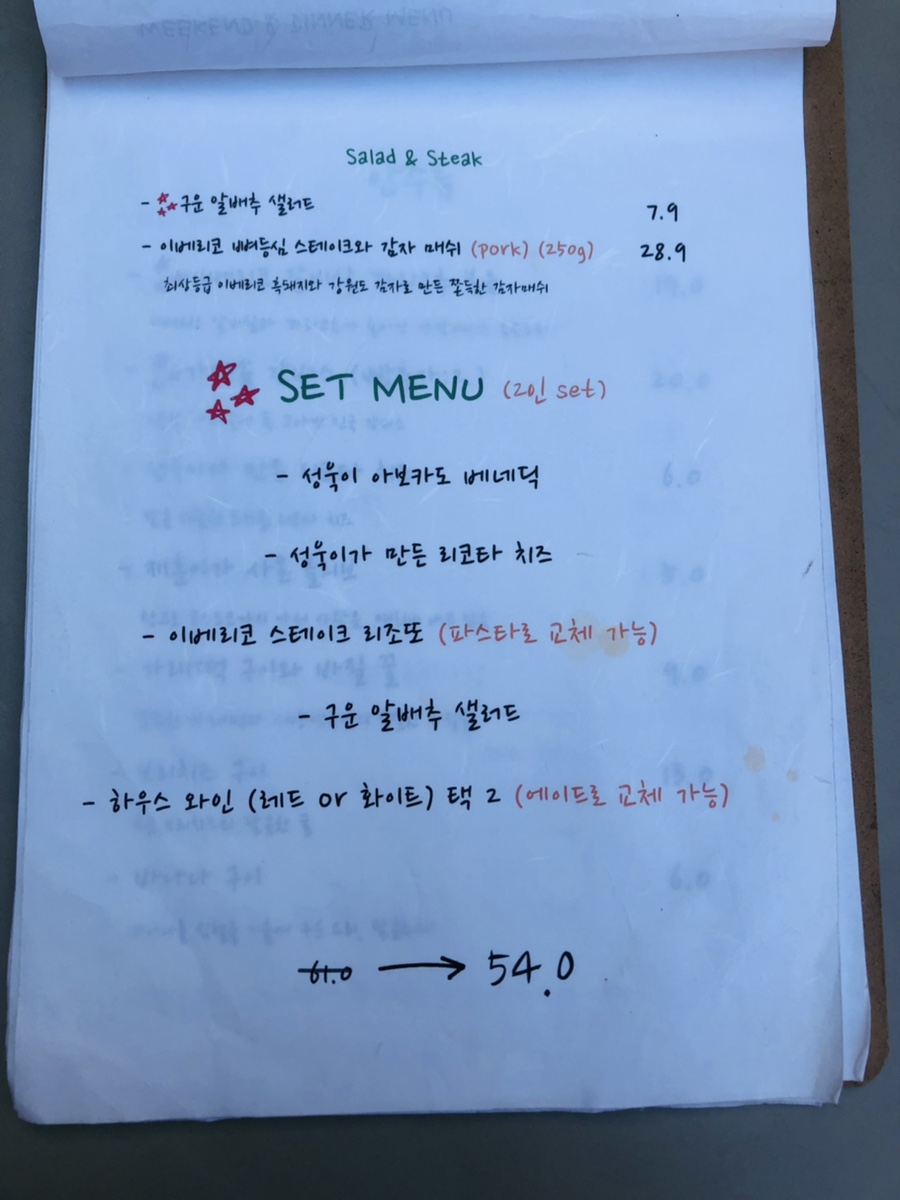 WEEKEND & DINNER MENU
Salad & Steak
- 구운 알배추 샐러드 7.9
- 이베리코 뼈등심 스테이크와 감자 매쉬 (pork) (250g) 28.9
최상등급 이베리코 흑돼지와 강원도 감자로 만든 쫄득한 감자매쉬
SET MENU (2인 set)
- 성욱이 아보카도 베네딕
- 성욱이가 만든 리코타 치즈
- 이베리코 스테이크 리조또 (파스타로 교체 가능)
- 구운 알배추 샐러드
- 하우스 와인 (레드 or 화이트) 택 2 (에이드로 교체 가능)
61.0 → 54.0